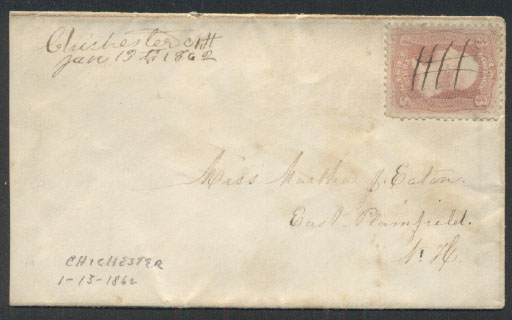 Chichester NH
Jan 13th 1862
Miss Martha J. Eaton.
East Plainfield.
N. H.
CHICHESTER
1-13-1862
3